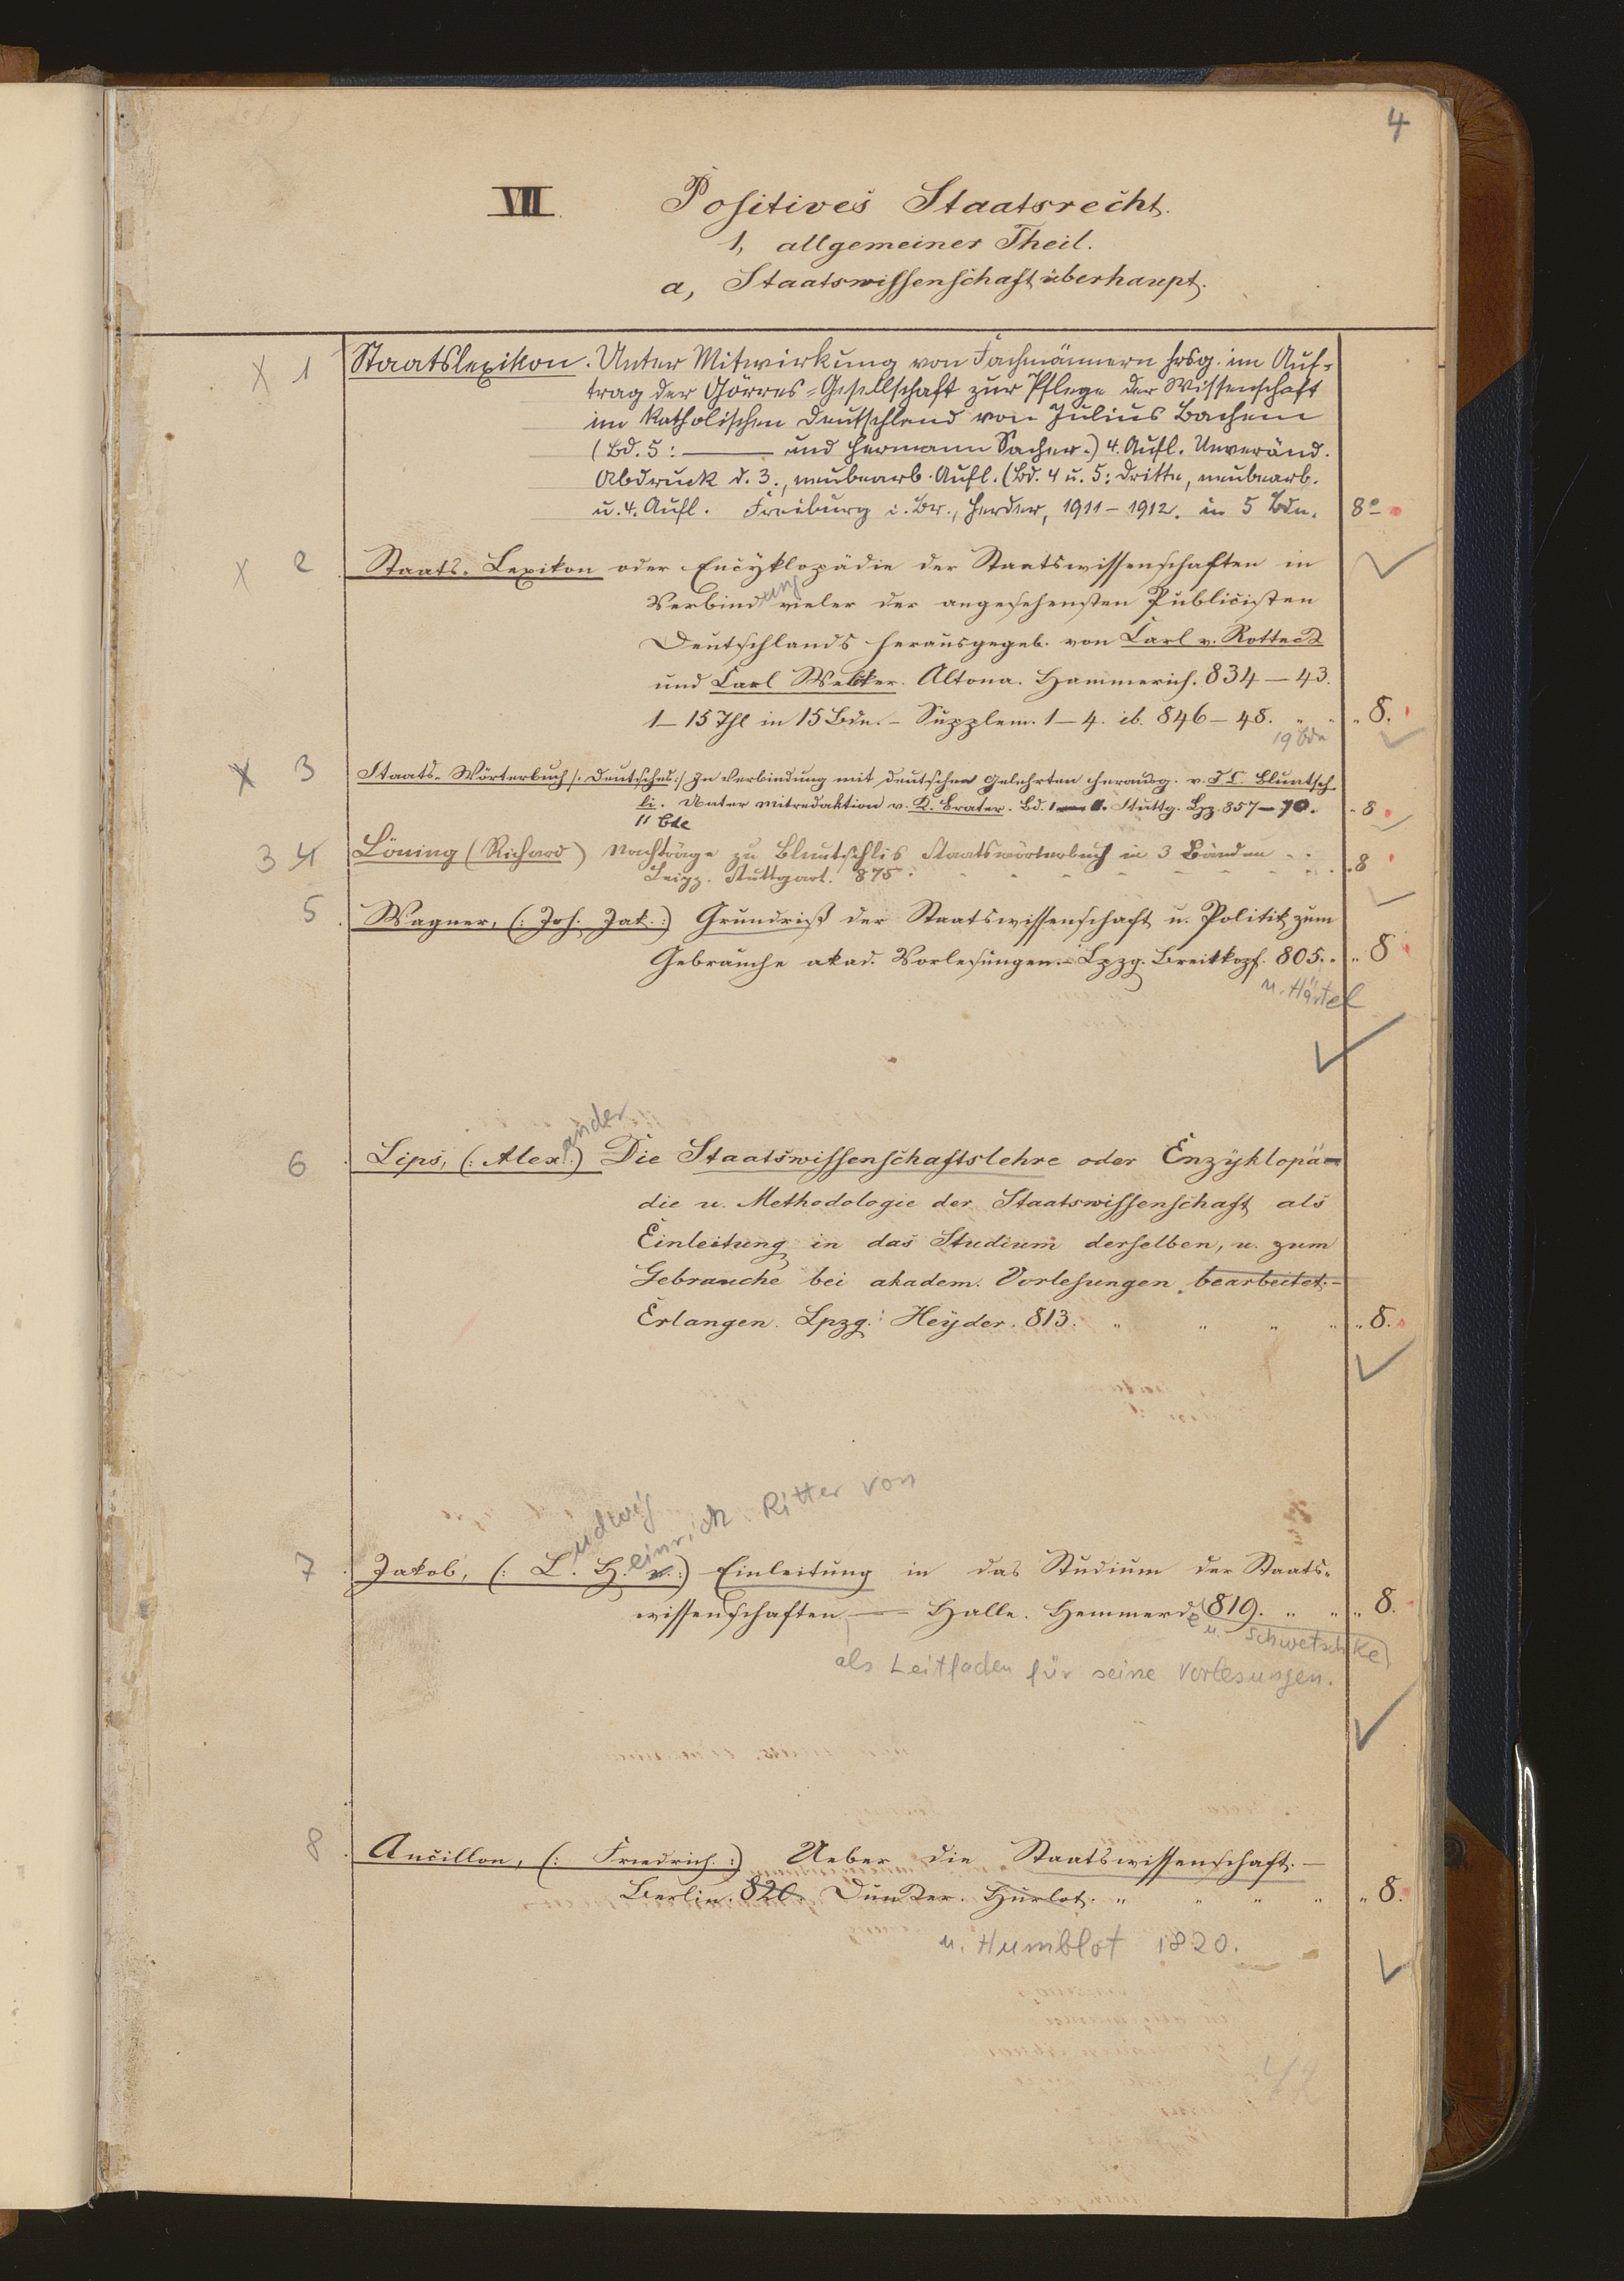 4
VII. Positives Staatsrecht.
1, allgemeiner Theil.
a, Staatswissenschaft überhaupt.
X 1 Staatslexikon. Unter Mitwirkung von Fachmännern hrsg. im Auf-
trag der Görres-Gesellschaft zur Pflege der Wissenschaft
im katholischen Deutschland von Julius Bachem
(Bd. 5: ——— und Hermann Sacher.) 4. Aufl. Unveränd.
Abdruck d. 3., neubearb. Aufl. (Bd. 4 u. 5: Dritte, neubearb.
u. 4. Aufl. Freiburg i. Br., Herder, 1911–1912. in 5 Bdn. 8°
X 2 Staats-Lexikon oder Encyklopädie der Staatswissenschaften in
Verbindung vieler der angesehensten Publicisten
Deutschlands herausgegeb. von Carl v. Rotteck
und Carl Welcker. Altona. Hammerich. 834–43.
1–15 Thl in 15 Bdn. – Supplem. 1–4. ib. 846–48. „ „ „ 8.
19 Bde
X 3 Staats-Wörterbuch /: Deutsches :/ In Verbindung mit deutschen Gelehrten herausg. v. J C. Bluntsch
li. Unter Mitredaktion v. K. Brater. Bd. 1–11. Stuttg. Lpz. 857–70. „ 8
11 Bde
3 4 Löning (Richard) Nachträge zu Bluntschlis Staatswörterbuch in 3 Bänden
Leipz. Stuttgart. 875. „ 8
5 Wagner, (: Joh. Jak. :) Grundriß der Staatswissenschaft u. Politik zum
Gebrauche akad. Vorlesungen. – Lpzg. Breitkopf. 805. „ „ 8
u. Härtel
6 Lips, (: Alexander :) Die Staatswissenschaftslehre oder Enzyklopä-
die u. Methodologie der Staatswissenschaft als
Einleitung in das Studium derselben, u. zum
Gebrauche bei akadem. Vorlesungen bearbeitet. –
Erlangen. Lpzg. Heyder. 813. „ „ „ „ „ 8.
udwig einrich Ritter von
7 Jakob, (: L. H. v. :) Einleitung in das Studium der Staats-
wissenschaften — Halle. Hemmerde 819. „ „ „ 8.
u. Schwetschke
als Leitfaden für seine Vorlesungen.
8 Ancillon, (: Friedrich :) Ueber die Staatswissenschaft. –
Berlin. 820. Duncker. Hurlot. „ „ „ „ „ 8.
u. Humblot 1820.